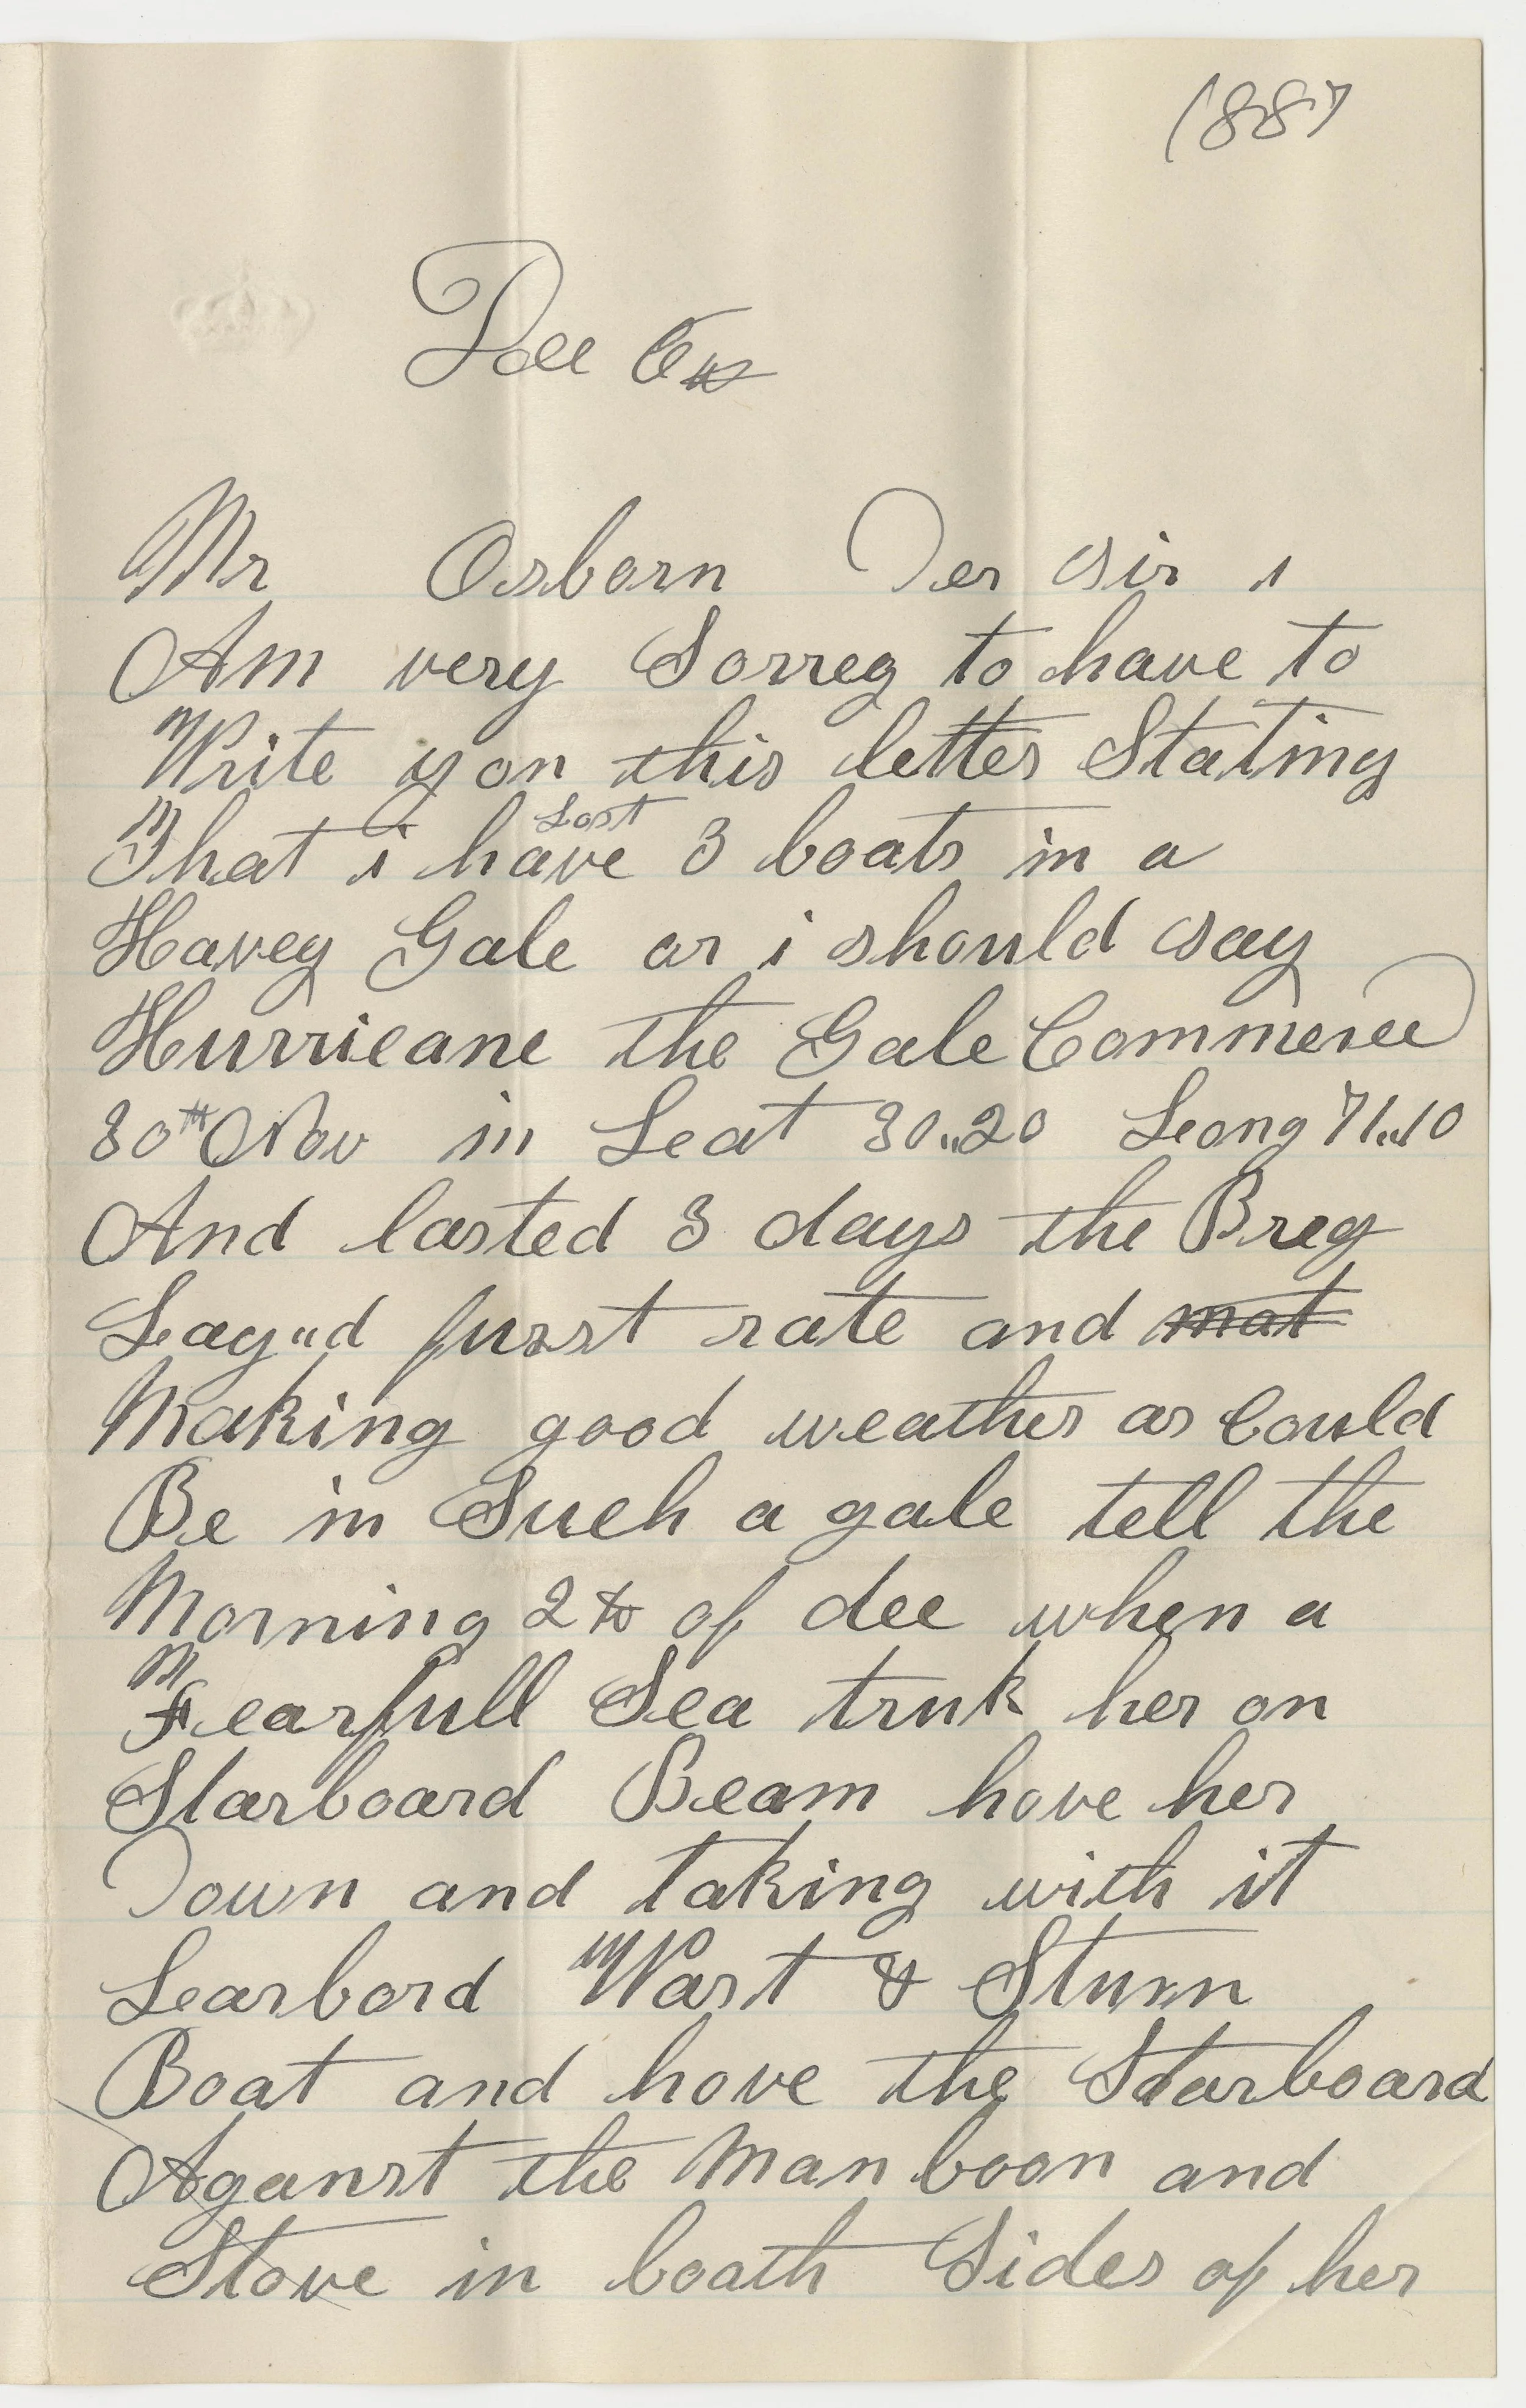 1887
Dec
Mr Osborn Der Sir i
Am very Sorrey to have to
Write you this letter Stating
That i have Lost 3 boats in a
Havey Gale or i should say
Hurricane the Gale Commenced
30th Nov in Leat 30..20 Leong 71..10
And lasted 3 days the Breg
Layed furst rate and mat
Making good weather as Could
Be in Such a gale tell the
Morning 2th of dec when a
Fearfull Sea truk her on
Starboard Beam hove her
Down and taking with it
Learbord Wast & Sturn
Boat and hove the Starboard
Aganst the Man boon and
Stove in boath Sides of her